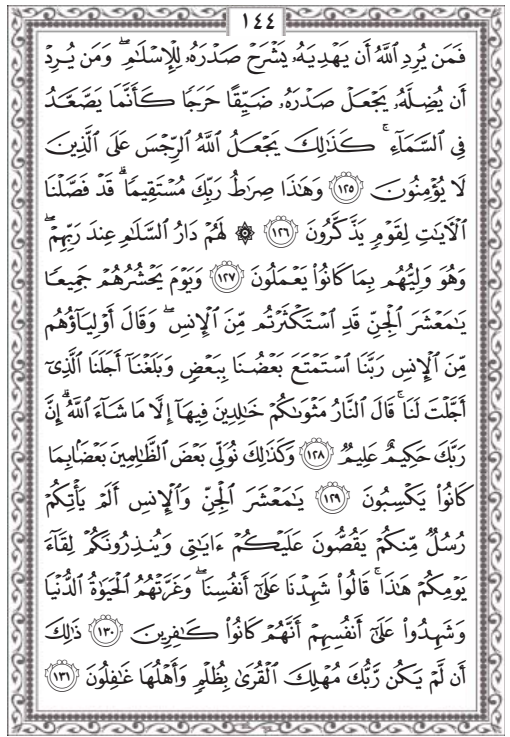 ١٤٤
فَمَن يُرِدِ ٱللَّهُ أَن يَهْدِيَهُۥ يَشْرَحْ صَدْرَهُۥ لِلْإِسْلَٰمِ ۖ وَمَن يُرِدْ
أَن يُضِلَّهُۥ يَجْعَلْ صَدْرَهُۥ ضَيِّقًا حَرَجًا كَأَنَّمَا يَصَّعَّدُ
فِى ٱلسَّمَآءِ ۚ كَذَٰلِكَ يَجْعَلُ ٱللَّهُ ٱلرِّجْسَ عَلَى ٱلَّذِينَ
لَا يُؤْمِنُونَ ١٢٥ وَهَٰذَا صِرَٰطُ رَبِّكَ مُسْتَقِيمًا ۗ قَدْ فَصَّلْنَا
ٱلْـَٔايَٰتِ لِقَوْمٍ يَذَّكَّرُونَ ١٢٦ ۞ لَهُمْ دَارُ ٱلسَّلَٰمِ عِندَ رَبِّهِمْ ۖ
وَهُوَ وَلِيُّهُم بِمَا كَانُوا۟ يَعْمَلُونَ ١٢٧ وَيَوْمَ يَحْشُرُهُمْ جَمِيعًا
يَٰمَعْشَرَ ٱلْجِنِّ قَدِ ٱسْتَكْثَرْتُم مِّنَ ٱلْإِنسِ ۖ وَقَالَ أَوْلِيَآؤُهُم
مِّنَ ٱلْإِنسِ رَبَّنَا ٱسْتَمْتَعَ بَعْضُنَا بِبَعْضٍ وَبَلَغْنَآ أَجَلَنَا ٱلَّذِىٓ
أَجَّلْتَ لَنَا ۚ قَالَ ٱلنَّارُ مَثْوَىٰكُمْ خَٰلِدِينَ فِيهَآ إِلَّا مَا شَآءَ ٱللَّهُ ۗ إِنَّ
رَبَّكَ حَكِيمٌ عَلِيمٌ ١٢٨ وَكَذَٰلِكَ نُوَلِّى بَعْضَ ٱلظَّٰلِمِينَ بَعْضًۢا بِمَا
كَانُوا۟ يَكْسِبُونَ ١٢٩ يَٰمَعْشَرَ ٱلْجِنِّ وَٱلْإِنسِ أَلَمْ يَأْتِكُمْ
رُسُلٌ مِّنكُمْ يَقُصُّونَ عَلَيْكُمْ ءَايَٰتِى وَيُنذِرُونَكُمْ لِقَآءَ
يَوْمِكُمْ هَٰذَا ۚ قَالُوا۟ شَهِدْنَا عَلَىٰٓ أَنفُسِنَا ۖ وَغَرَّتْهُمُ ٱلْحَيَوٰةُ ٱلدُّنْيَا
وَشَهِدُوا۟ عَلَىٰٓ أَنفُسِهِمْ أَنَّهُمْ كَانُوا۟ كَٰفِرِينَ ١٣٠ ذَٰلِكَ
أَن لَّمْ يَكُن رَّبُّكَ مُهْلِكَ ٱلْقُرَىٰ بِظُلْمٍ وَأَهْلُهَا غَٰفِلُونَ ١٣١